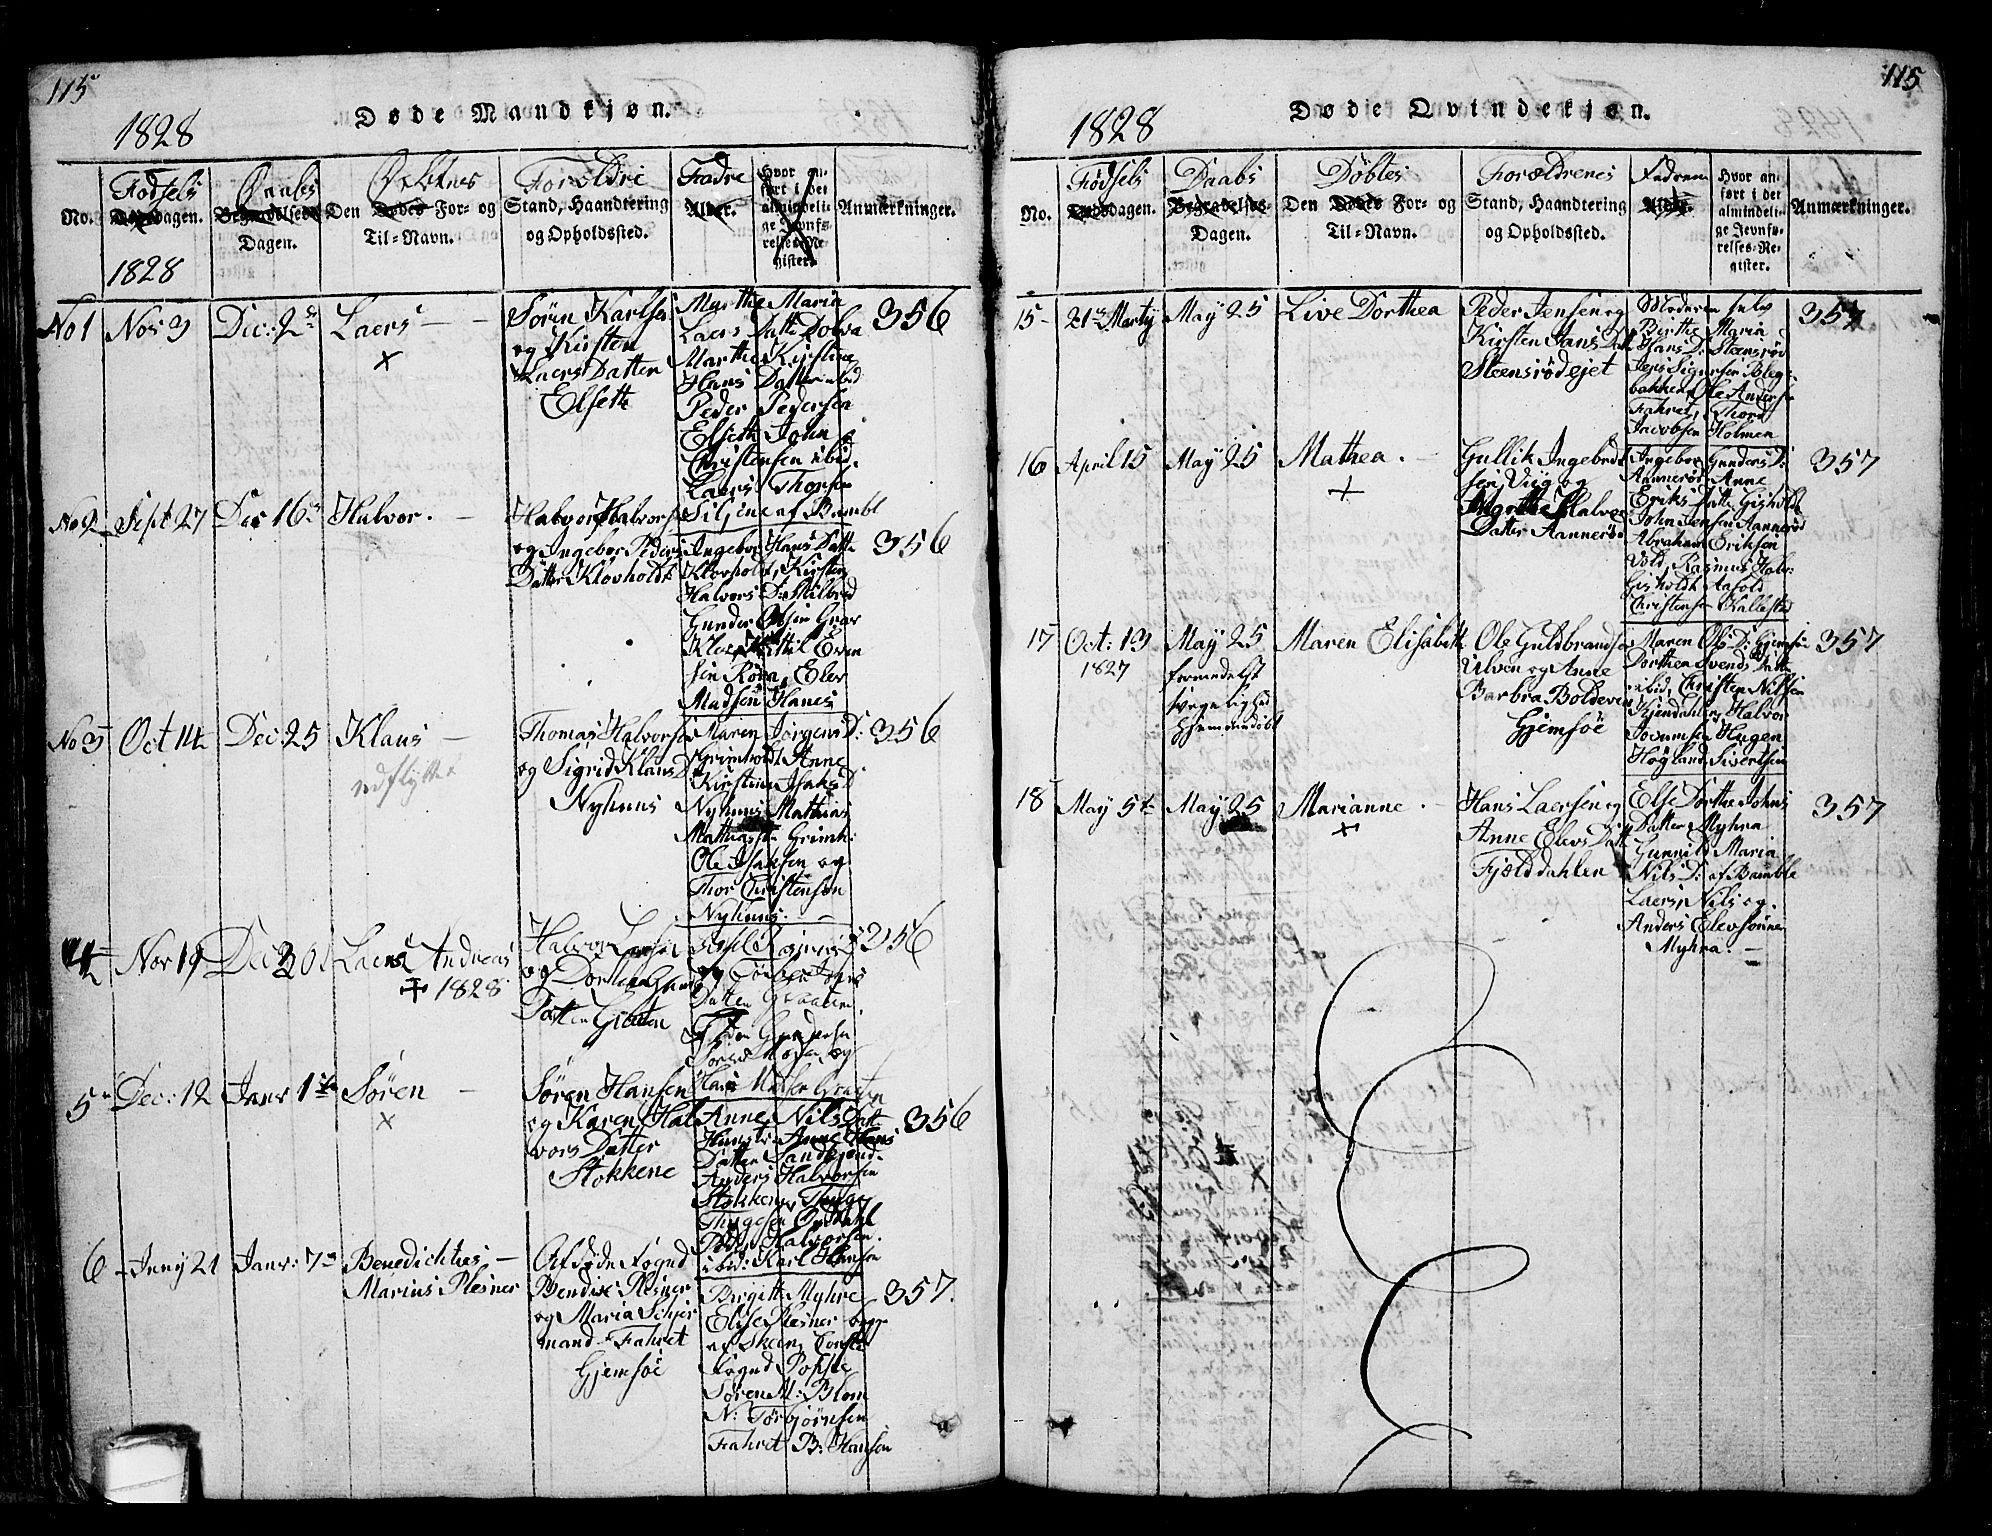 115
1828
Døde Mandkjøn.
No.
Fødsels
Døds-Dagen.
Daabs
Begravelses-
Dagen.
Døbtes
Den Dødes For- og
Til-Navn.
Forældre
Stand, Haandtering
og Opholdssted.
Fadre
Alder.
Hvor an-
ført i det
almindeli-
ge Jevnfø-
relses-Re-
gister.
Anmærkninger.
1828
No 1
Nov 3
Dec: 2
Laers
+
Søren Karlsen
og Kirsten
Laers Datter
Elseth
Marthe Maria
Laers Datt Dolva
Marthe Kirstine
Hans Datter ibid
Peder Pedersen
Elseth John
Christensen ibid.
Laers Thorsen
Siljene af Bambl
356
No 2
Sept 27
Dec 16
Halvor.
Halvor Halvorsen
og Ingebor Peders
Datter Klovholdt
Ingebor Hans Datte
Klovholt, Kirsten
Halvors D:
Gunder Olsen
Kittil Even
sen Røra, Elev
Madsen Hanes
356
No 3
Oct 14
Dec: 25
Klaus
udflytte
Thomas Halvorsen
og Sigrid Klaus D
Nyhuus
Maren Jørgens D:
Grimholdt Anne
Kirstine Isaks D
Nyhuus Mathias
Mathiassen Grimh:
Ole Isaksen og
Thor Christensen
Nyhuus.
356
4
Nov 19
Dec 30
Laers Andreas
+ 1828
Halvor Larsen
og Dorthea
Datter
og Torber
Datter Graaten
og
356
5
Dec: 12
Janv 1st
Søren
+
Søren Hansen
og Karen Hal
vors Datter
Stokkene
Anne Nils Dat
Anne Hans
Datter
Anders Halvorsen
Stokkene,
Thygesen
Halvorsen.
ibid: Karl Hansen
356
6
Juny 21
Janv: 7
Benedichtus
Marius Plesner
Afdøde Fogud
Bendix Plesner
og Maria Schjer
mand - Fahret
Gjemsøe
Birgitte Myhre
Elise Plesner begge
af Skeen, Const:
Fogud Poppe
Søren M: Blom
N: Torbjørnsen
Fahret B: Hansen
357.
115
1828
Døde Qvindekjøn.
No.
Fødsels
Døds-dagen.
Daabs
Begravelses-
Dagen.
Døbtes
Den Dødes For- og
Til-Navn.
Forældrenes
Stand, Haandtering
og Opholdssted.
Fadrene
Alder.
Hvor an-
ført i det
almindeli-
ge Jevnfø-
relses-Re-
gister.
Anmærkninger.
15
21 Marty
May 25
Live Dorthea
Peder Jensen og
Kirsten Jans Datt
Steensrødejet
Moderen selv
Berthe Maria
Hans D: Steensrød
Jens Sigursen Bleg
bakken, Ole Anders
Fahret, Thord
Jacobsen Holmen
357
16
April 15
May 25
Mathea.
+
Gullik Ingebrets
sen Viig og
Marthe Halvor
Datter Aannerød
Ingebor Gunders D:
Aannerød Anne
Eriks Datte Gisholdt
John Jensen Aannerød
Abraham Eriksen
Vold, Rasmus Halv:
Gisholdt Anfold
Christensen Kallestad
357
17
Oct: 13
1827
May 25
formedelst
svagelighed
hjemmedøbt
Maren Elisabeth
Ole Guldbrandsen
Ulven og Anne
Barbra Boldeven
Gjemsøe
Maren Ols D: Gjemsøe
Dorthea Svends Datte
ibid, Christen Nilsen
Kjendahlen, Halvor
Jocumsen Haugen
Høgland Sivertsen
357
18
May 5t
May 25
Marianne.
+
Hans Laersen og
Anne Elevs Datt
Fjælddahlen
Else Dorthea Johns
Datter Myhra
Gunnild Maria
Nils D: af Bamble
Laers, Nils og
Anders Elevsønner
Myhra.
357